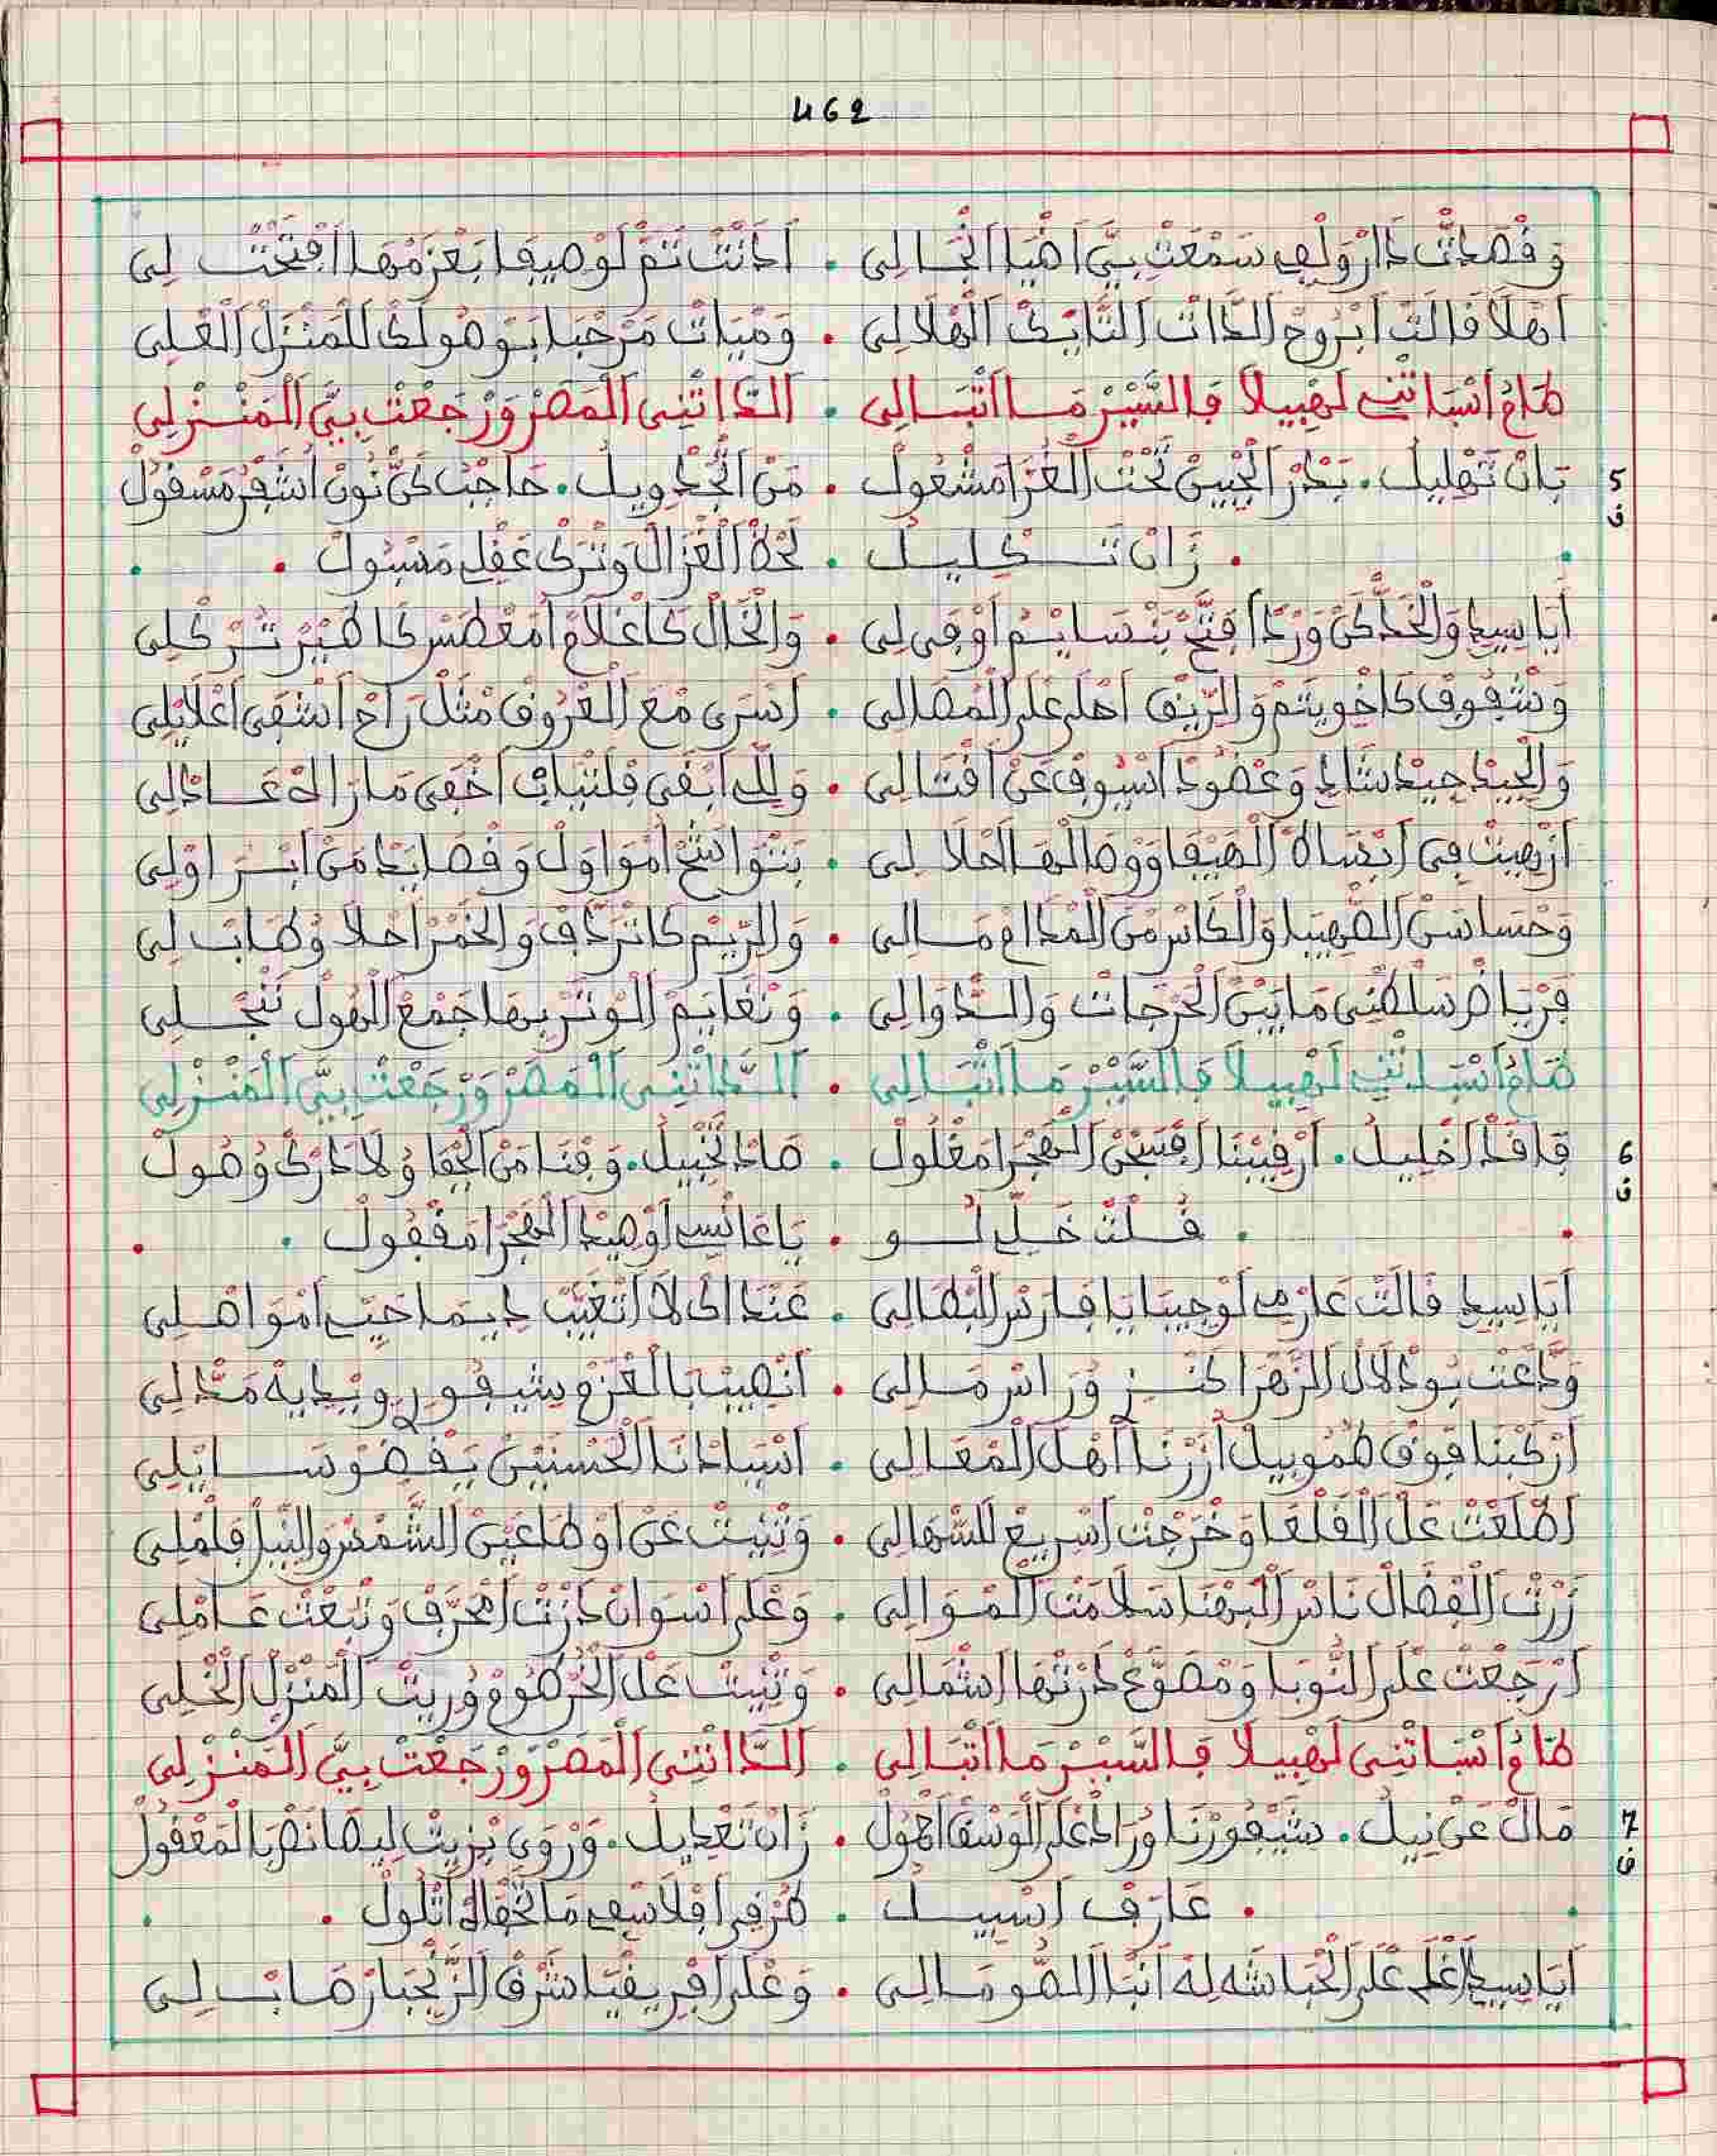 462
وقصدت دار ولفي سمعت بيّ اضيا انجالي . اذنت تم لوصيفا بعزمها افتحت لي
اهلا قالت ابروح الذات التايك الهلالي . ومبات مرحبا بوصولك للمنزل العلي
طام انساتني لهبيلا فالسير ما اتبالي . الداتني المصر ورجعت بيّ المنزلي
5
ف
بان تهليل . بدر الجبين تحت الغرا مشعول . من التجدويل . حاجب كن نون اشفر مسقول
. زان تكليل . لحظ الغزال وترك عقلي مسبول .
أيا سيدي والخد كن ورد افتح بنسايم اوفى لي . والخال كاغلام امغطس كاطير تركلي
وشفوف كاخويتم والريق احلى على المصالي . اسرى مع العروق مثل راح اشفى اعلايلي
والجيد جيد شادي وعضود اسيوف عن اقتالي . وللي ابقى فلتياب اخفى مازاله عادلي
ازهيت في ابساط الهيفا ووصالها احلا لي . بتواشح امواول وقصايد من ابراولي
وحسا سن الصهبا والكاس من المدام مالي . والريم كاتردف والخمر احلا وطاب لي
فرياض سلطني ما بين الحرجات والدوالي . ونغايم الوتر بها جمع الهول ننجلي
طام انساتني لهبيلا فالسير ما اتبالي . الداتني المصر ورجعت بيّ المنزلي
6
ف
قافد اخليل . ارقيبنا افسجن الهجرا مغلول . صاد تخبيل . وفنا من الجفا ولا درك وصول
. قلت خليلو . يا عانسي اوصيد الهجرا مقفول .
أيا سيدي قالت عازمي لوجيبا يا فارس البطالي . عندك لا اتغيب ديما حيي امواصلي
ودعت بودلال الزهرا كنزو راس مالي . انصيب بالعزم شيفوري وبيديه مدلي
اركبنا فوق طموبيل ازرنا أهل المعالي . اسيادنا الحسنين يقضو سايلي
اطلعت على القلعا وخرجت اسريع للشمالي . وثنيت عن اوطا عين الشمس والنيل قامْلي
زرت الفضال ناس البهنا سلامت الموالي . وعلى اسوان درت امحرف وتبعت عاملي
ارجعت على النوبا ومصوع درتها اشمالي . وثنيت على الخرطوم وريت المنزل الخلي
طام انساتني لهبيلا فالسير ما اتبالي . الداتني المصر ورجعت بيّ المنزلي
7
ف
مال عن نيل . شيفورنا وراد على الوسقا اهول . زان تعديل . وروى بزيت ليصانص بالمعقول
. عارف اسبيل . طرفي افلاسفي ما تخفاه اتلول .
أيا سيدي اغلى على الحباشه له انبا الصومالي . وعلى افريقيا شرق الزنجبار صاب لي